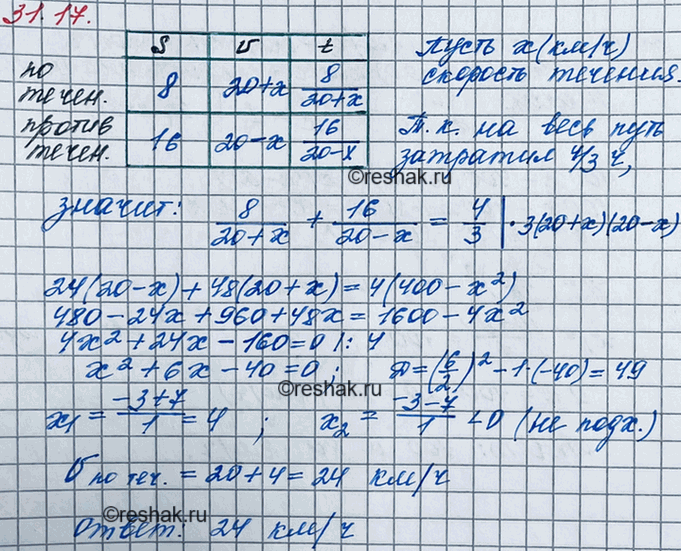 31.17.
S v t
по течен. 8 20+x 8/(20+x)
против течен. 16 20-x 16/(20-x)
Пусть x(км/ч)
скорость течения.
Т.к. на весь путь
затратил 4/3 ч,
©reshak.ru
значит: 8/(20+x) + 16/(20-x) = 4/3 | ·3(20+x)(20-x)
24(20-x)+48(20+x)=4(400-x²)
480-24x+960+48x=1600-4x²
4x²+24x-160=0 |:4
x²+6x-40=0; D=(6/2)²-1·(-40)=49
©reshak.ru
x₁ = (-3+7)/1 = 4 ; x₂ = (-3-7)/1 <0 (не подх.)
v по теч. = 20+4=24 км/ч
©reshak.ru
Ответ: 24 км/ч